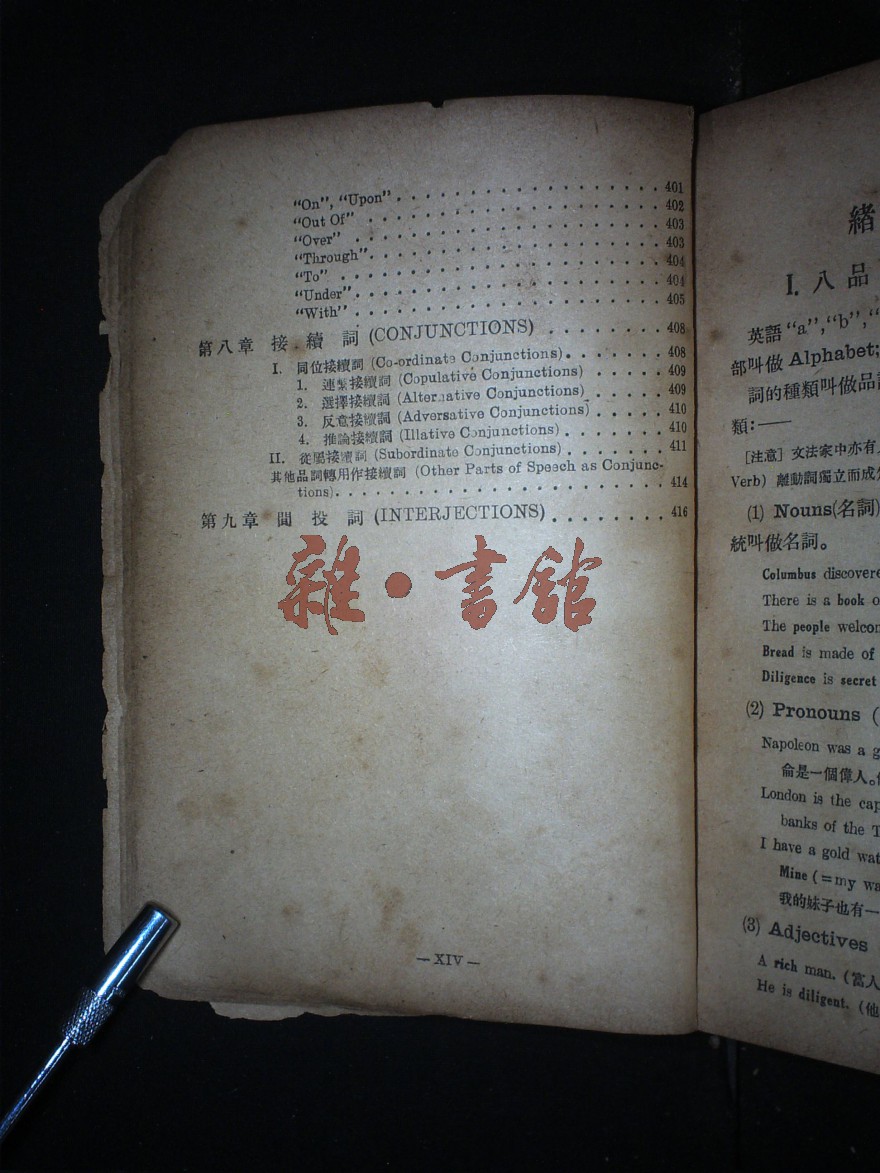 "On", "Upon" . . . . . . . . . . . . . . . . . . 401
"Out Of" . . . . . . . . . . . . . . . . . . . . 402
"Over" . . . . . . . . . . . . . . . . . . . . . 403
"Through" . . . . . . . . . . . . . . . . . . . . 403
"To" . . . . . . . . . . . . . . . . . . . . . . 404
"Under" . . . . . . . . . . . . . . . . . . . . . 404
"With" . . . . . . . . . . . . . . . . . . . . . 405
第八章 接續詞 (CONJUNCTIONS) . . . . . . . . 408
I. 同位接續詞 (Co-ordinate Conjunctions) . . . . . . . 408
1. 連繫接續詞 (Copulative Conjunctions) . . . . . . 409
2. 選擇接續詞 (Alternative Conjunctions) . . . . . . 409
3. 反意接續詞 (Adversative Conjunctions) . . . . . . 410
4. 推論接續詞 (Illative Conjunctions) . . . . . . . 410
II. 從屬接續詞 (Subordinate Conjunctions) . . . . . . . 411
其他品詞轉用作接續詞 (Other Parts of Speech as Conjunc-
tions) . . . . . . . . . . . . . . . . . . . . 414
第九章 間投詞 (INTERJECTIONS) . . . . . . . . 416
雜·書館
—XIV—
緒
I. 八品
英語 "a", "b", "
部叫做 Alphabet;
詞的種類叫做品詞
類:——
[注意] 文法家中亦有
Verb) 離動詞獨立而成
(1) Nouns(名詞)
統叫做名詞。
Columbus discovere
There is a book o
The people welcom
Bread is made of
Diligence is secret
(2) Pronouns (
Napoleon was a g
侖是一個偉人。
London is the cap
banks of the T
I have a gold wat
Mine (=my wa
我的妹子也有一
(3) Adjectives
A rich man. (富人
He is diligent. (他